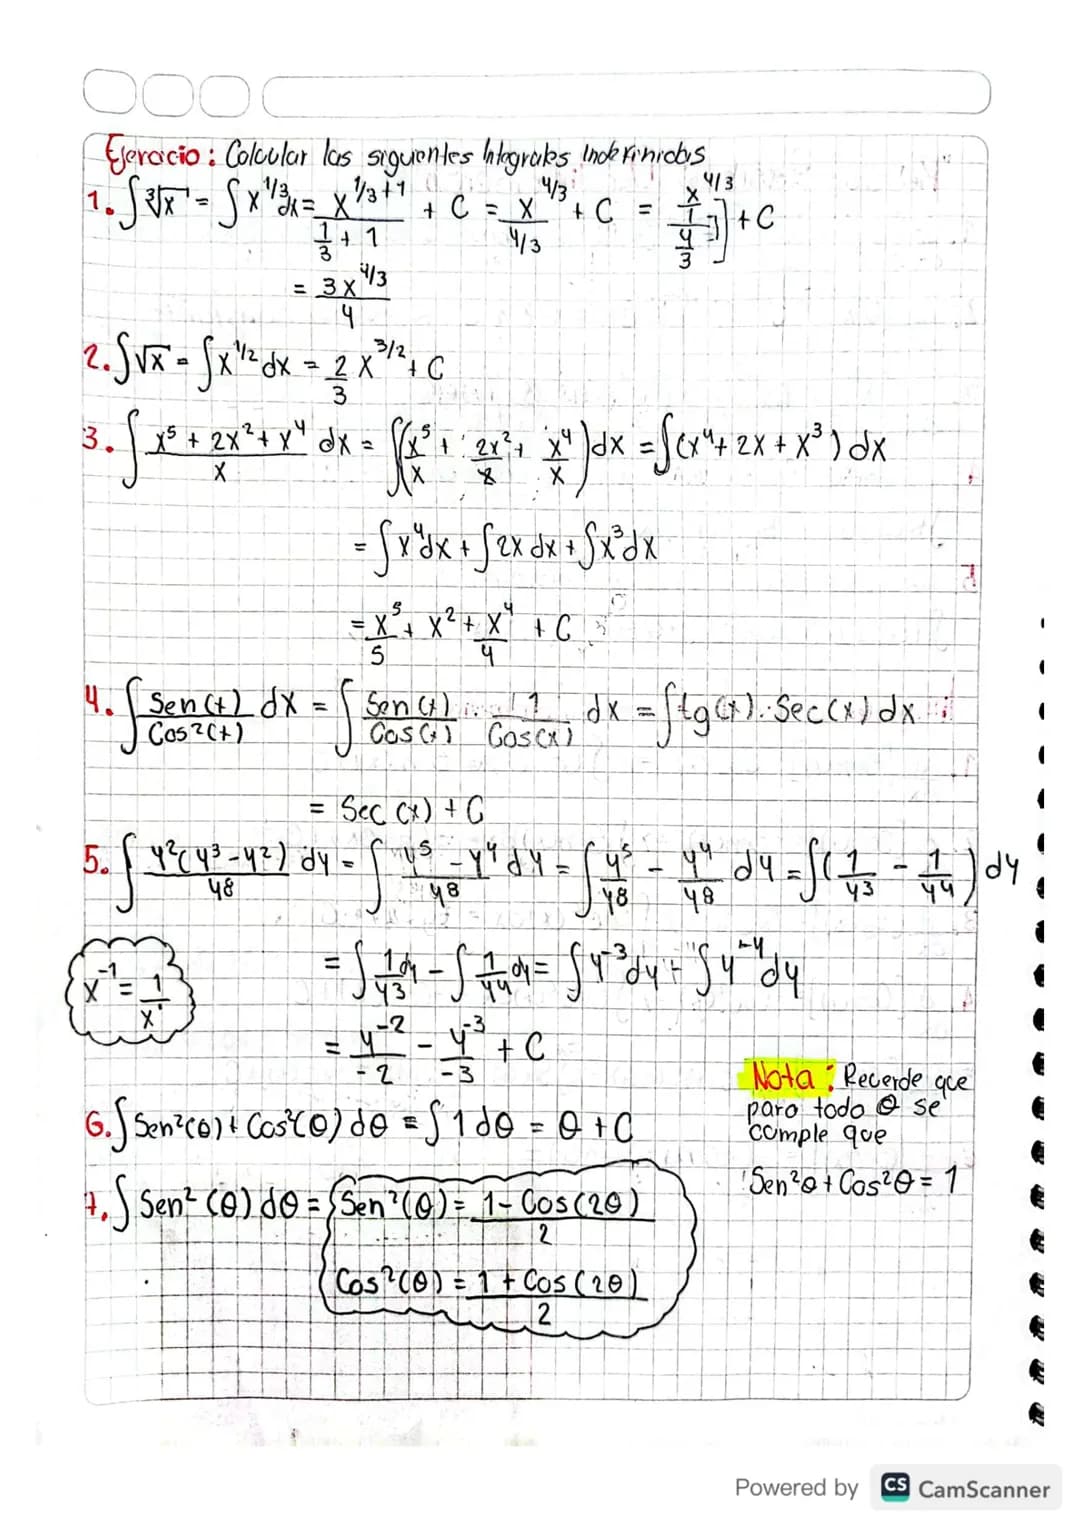 Ejercicio: Calcular las siguientes Integrales Indefinidas
1. ∫∛x = ∫x^1/3 dx = x^(1/3+1) / (1/3 + 1) + C = x^4/3 / 4/3 + C = (x^4/3 / 1) / (4/3) ] + C
= 3x^4/3 / 4
2. ∫√x = ∫x^1/2 dx = 2/3 x^3/2 + C
3. ∫ (x^5 + 2x^2 + x^4) / x dx = ∫(x^5/x + 2x^2/x + x^4/x) dx = ∫(x^4 + 2x + x^3) dx
= ∫x^4 dx + ∫2x dx + ∫x^3 dx
= x^5/5 + x^2 + x^4/4 + C
4. ∫ Sen(x)/Cos^2(x) dx = ∫ Sen(x)/Cos(x) · 1/Cos(x) dx = ∫tg(x) · Sec(x) dx
= Sec(x) + C
5. ∫ y^2(y^3 - y^2)/y^8 dy = ∫ (y^5 - y^4)/y^8 dy = ∫ y^5/y^8 - y^4/y^8 dy = ∫(1/y^3 - 1/y^4) dy
= ∫ 1/y^3 dy - ∫ 1/y^4 dy = ∫y^-3 dy - ∫y^-4 dy
x^-1 = 1/x^1
= y^-2/-2 - y^-3/-3 + C
Nota: Recuerde que
para todo θ se
cumple que
6. ∫Sen^2(θ) + Cos^2(θ) dθ = ∫1 dθ = θ + C
Sen^2θ + Cos^2θ = 1
7. ∫Sen^2(θ) dθ = Sen^2(θ) = (1 - Cos(2θ))/2
Cos^2(θ) = (1 + Cos(2θ))/2
Powered by CS CamScanner